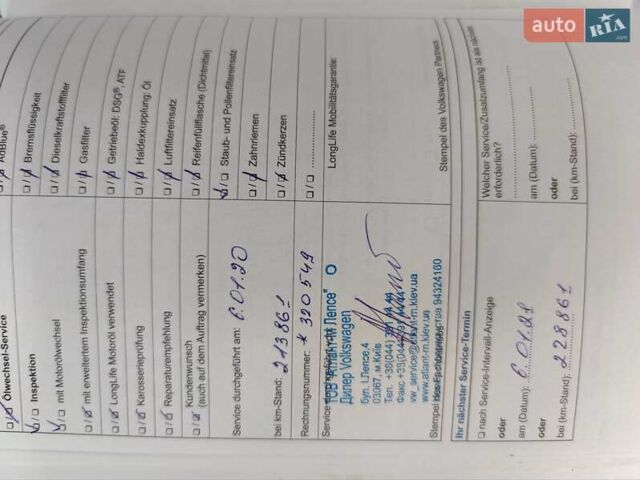 auto RIA.com
Ölwechsel-Service
Inspektion
mit Motorölwechsel
mit erweitertem Inspektionsumfang
LongLife Motoröl verwendet
Karosserieprüfung
Reparaturempfehlung
Kundenwunsch
(auch auf dem Auftrag vermerken)
AdBlue®
Bremsflüssigkeit
Dieselkraftstofffilter
Gasfilter
Getriebeöl: DSG®, ATF
Haldexkupplung: Öl
Luftfiltereinsatz
Reifenfüllflasche (Dichtmittel)
Staub- und Pollenfiltereinsatz
Zahnriemen
Zündkerzen
Service durchgeführt am: 6.01.20
bei km-Stand: 213861
Rechnungsnummer: * 320549
LongLife Mobilitätsgarantie:
ТОВ "Атлант-М Лепсе"
Дилер Volkswagen
бул. І.Лепсе,4
03067, м.Київ
Тел. +38(044)
Факс +38(044)
vw_service@atlant-m.kiev.ua
www.atlant-m.kiev.ua
94324180
Stempel des Volkswagen Partners
Ihr nächster Service-Termin
nach Service-Intervall-Anzeige
oder
am (Datum): 6.01.21
oder
bei (km-Stand): 228861
Welcher Service/Zusatzumfang ist als nächstes
erforderlich?
am (Datum):
oder
bei (km-Stand):